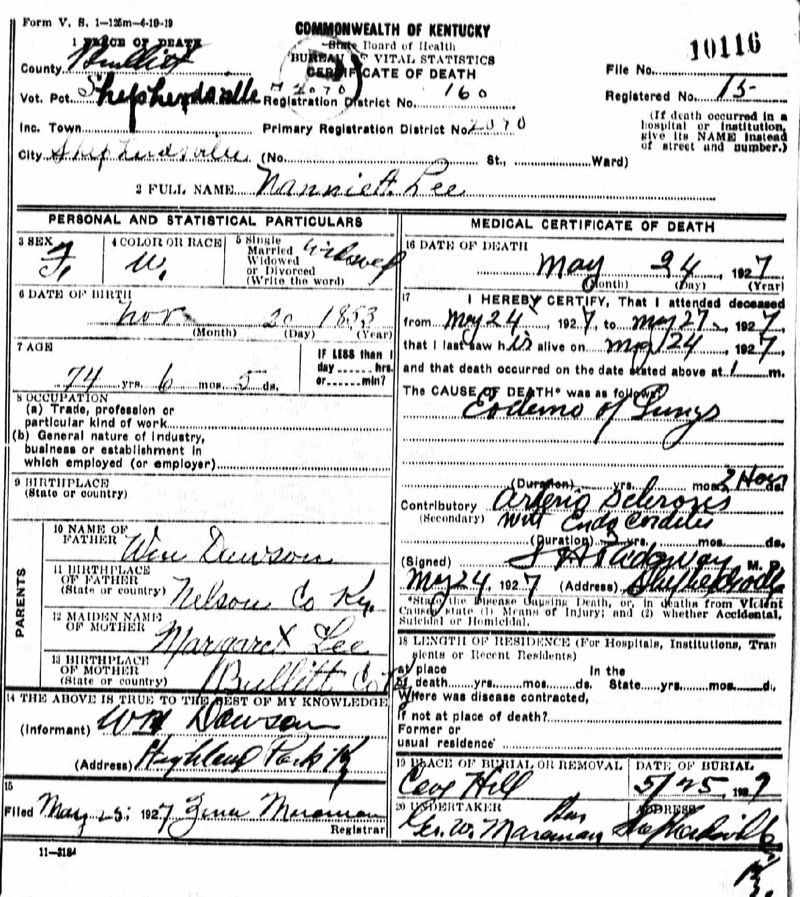 Form V. S. 1—125m—6-19-19
COMMONWEALTH OF KENTUCKY
State Board of Health
BUREAU OF VITAL STATISTICS
CERTIFICATE OF DEATH
10116
File No.
Registered No. 15
(If death occurred in a hospital or institution, give its NAME instead of street and number.)
1 PLACE OF DEATH
County Bullitt
Vot. Pct. Shepherdsville 2070 Registration District No. 160
Inc. Town Primary Registration District No. 2070
City Shepherdsville (No. St., Ward)
2 FULL NAME Nannie Lee
PERSONAL AND STATISTICAL PARTICULARS
3 SEX F.
4 COLOR OR RACE W.
5 Single Married Widowed or Divorced (Write the word) Widowed
6 DATE OF BIRTH
Nov 20 1853
(Month) (Day) (Year)
7 AGE
74 yrs. 6 mos. 5 ds.
IF LESS than 1 day hrs. or min?
8 OCCUPATION
(a) Trade, profession or particular kind of work
(b) General nature of Industry, business or establishment in which employed (or employer)
9 BIRTHPLACE
(State or country)
PARENTS
10 NAME OF FATHER Wm Dawson
11 BIRTHPLACE OF FATHER (State or country) Nelson Co Ky.
12 MAIDEN NAME OF MOTHER Margaret Lee
13 BIRTHPLACE OF MOTHER (State or country) Bullitt Co K
14 THE ABOVE IS TRUE TO THE BEST OF MY KNOWLEDGE
(Informant) Wm Dawson
(Address) Highland Park Ky
15
Filed May 25, 1927 Maraman
Registrar
11—3184
MEDICAL CERTIFICATE OF DEATH
16 DATE OF DEATH
May 24, 1927
(Month) (Day) (Year)
17 I HEREBY CERTIFY, That I attended deceased
from May 24, 1927, to May 27, 1927,
that I last saw h is alive on May 24 1927,
and that death occurred on the date stated above at 1 m.
The CAUSE OF DEATH* was as follows:
Eodema of Lungs
(Duration) yrs. mos. 2 Hours ds.
Contributory Arterio Sclerosis
(Secondary) with Endo Cordites
(Duration) yrs. mos. ds.
(Signed) Ridgway M. D.
May 24, 1927 (Address) Shepherdsville
*State the Disease Causing Death, or, in deaths from Violent Causes, state (1) Means of Injury; and (2) whether Accidental, Suicidal or Homicidal.
18 LENGTH OF RESIDENCE (For Hospitals, Institutions, Transients or Recent Residents)
At place In the
of death yrs. mos. ds. State yrs. mos. d.
Where was disease contracted,
if not at place of death?
Former or
usual residence
19 PLACE OF BURIAL OR REMOVAL DATE OF BURIAL
Cave Hill 5/25, 1927
20 UNDERTAKER ADDRESS
Geo. W. Maraman Son Shepherdsville